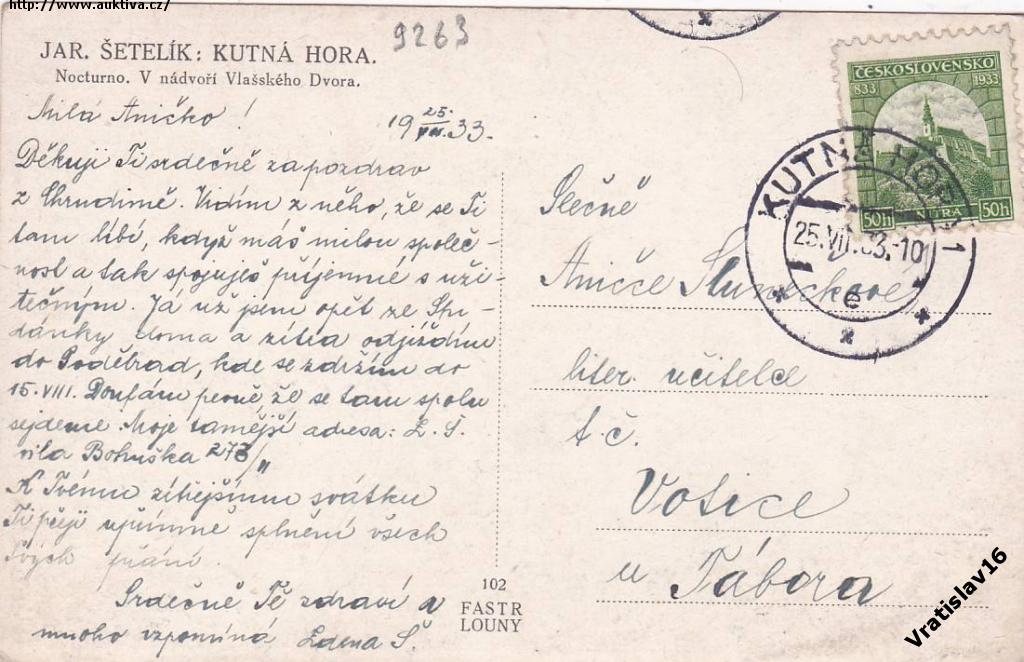 http://www.auktiva.cz/
9263
JAR. ŠETELÍK: KUTNÁ HORA.
Nocturno. V nádvoří Vlašského Dvora.
Milá Aničko!
19 25/VII. 33.
Děkuji Ti srdečně za pozdrav
z Chrudimě. Vidím z něho, že se Ti
tam líbí, když máš milou společ-
nost a tak spojuješ příjemné s uži-
tečným. Já už jsem opět ze Stu-
dánky doma a zítra odjíždím
do Poděbrad, kde se zdržím do
15.VIII. Doufám pevně, že se tam spolu
sejdeme. Moje tamější adresa: Z. Š.
vila Bohuška 273/II
K Tvému zítřejšímu svátku
Ti přeji upřímně splnění všech
Tvých přání.
Srdečně Tě zdraví a
mnoho vzpomíná Zdena Š.
102
FASTR
LOUNY
ČESKOSLOVENSKO
833 1933
50h NITRA 50h
KUTNÁ HORA 1
25.VII.33.-10
e
Slečně
Aničce
liter. učitelce
t. č.
Votice
u Tábora
Vratislav16